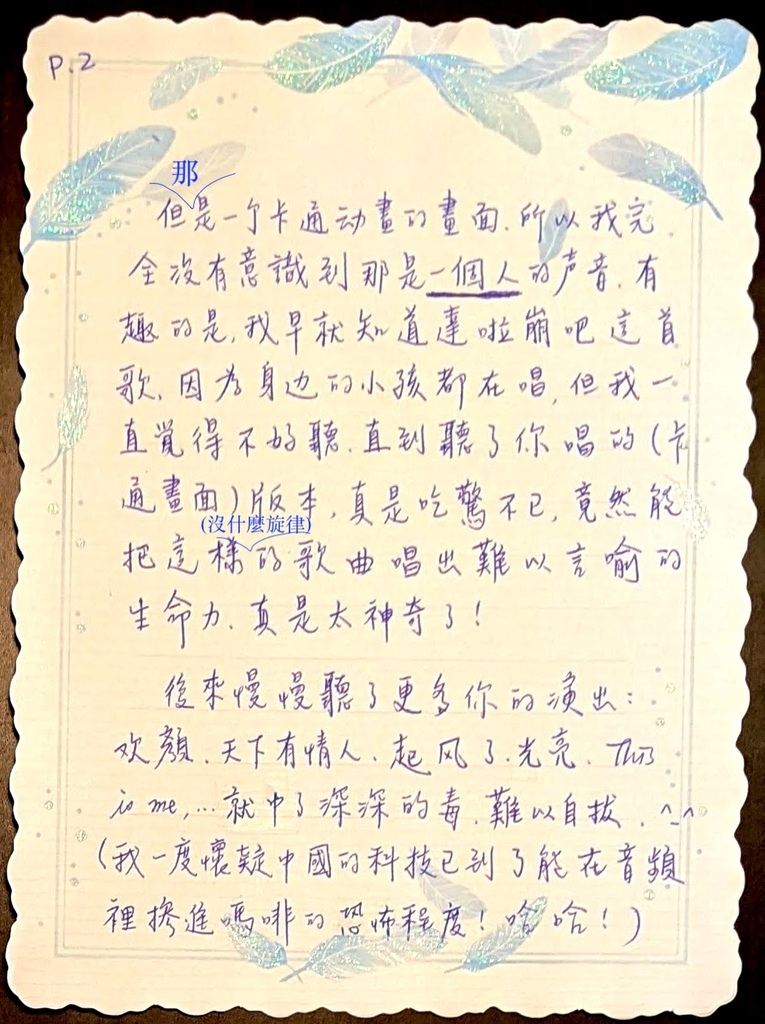 P.2
那
但是一个卡通动畫的畫面.所以我完
全没有意識到那是一個人的声音.有
趣的是,我早就知道達啦崩吧這首
歌.因为身边的小孩都在唱,但我一
直覺得不好聽.直到聽了你唱的(卡
通畫面)版本,真是吃驚不已,竟然能
(沒什麼旋律)
把這樣的歌曲唱出難以言喻的
生命力.真是太神奇了!
後來慢慢聽了更多你的演出:
欢顏.天下有情人.起风了.光亮.This
is me,...就中了深深的毒.難以自拔.^_^
(我一度懷疑中國的科技已到了能在音頻
裡摻進嗎啡的恐怖程度!哈哈!)